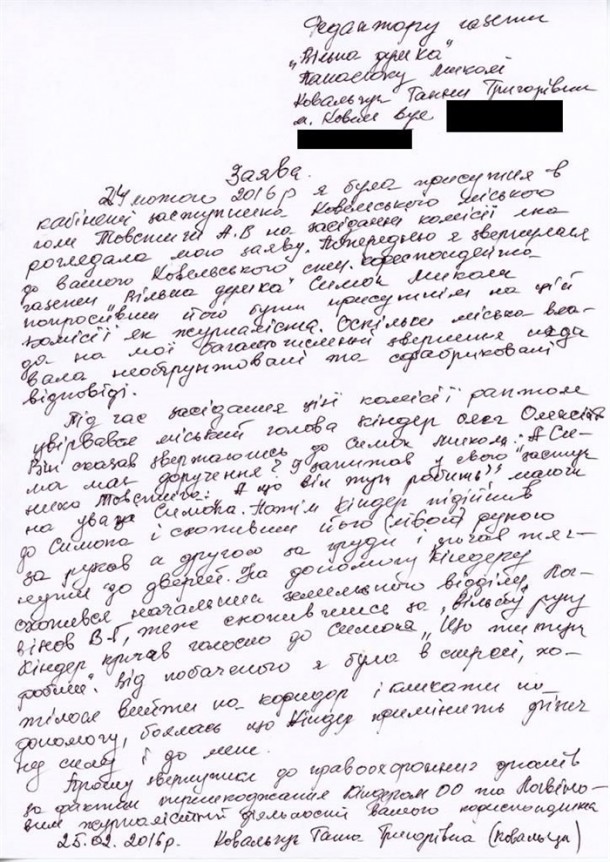 Редактору газети
„Вільна думка"
Панасюку Миколі
Ковальчук Ганни Григорівни
м. Ковель вул.
Заява.
24 лютого 2016 р я була присутня в
кабінеті заступника Ковельського міського
голови Товстиги А.В на засіданні комісії яка
розглядала мою заяву. Попередньо я звернулася
до вашого Ковельського спец. кореспондента
газети „Вільна думка" Симок Миколи
попросивши його бути присутнім на цій
комісії як журналіста. Оскільки міська вла-
да на мої багаточисленні звернення нада
вала необґрунтовані та сфабриковані
відповіді.
Під час засідання цієї комісії раптом
увірвався міський голова Кіндер Олег Олексій
Він сказав звертаючись до Симок Миколи: А Си-
ма має доручення? І запитав у свого „заступ
ника Товстиги: А що він тут робить?" маючи
на увазі Симока. Потім Кіндер підійшов
до Симока і схопивши його лівою рукою
за рукав а другою за груди і почав тяг-
нути до дверей. На допомогу Кіндеру
схопився начальник земельного відділу
В.Г, теж схопившись за руку
Кіндер кричав голосно до Симока „Що ти тут
робиш". Від побаченого я була в стресі, хо-
тілося вийти на коридор і кликати на
допомогу, боялась що Кіндер примінить фізич
ну силу і до мене.
Прошу звернутися до правоохоронних органів
за фактом перешкоджання Кіндером ОО та
журналістській діяльності вашого кореспондента
25.02.2016р. Ковальчук Ганна Григорівна (Ковальчук)